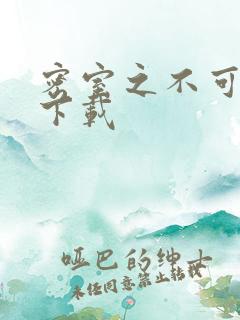 密室之不可
下载
哑巴的绅士
未经同意禁止转载